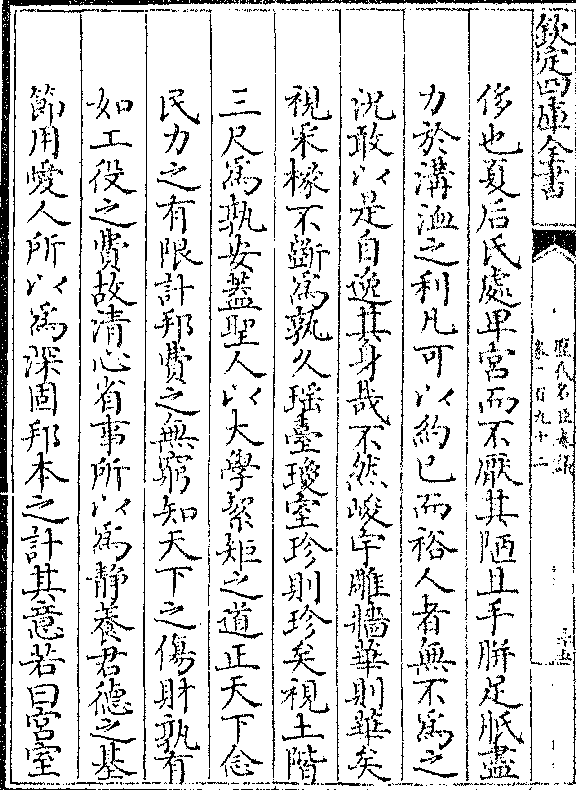 欽定四庫全書
歷代名臣奏議
卷一百九十二
侈也夏后氏處卑宮而不厭其陋且手胼足胝盡
力於溝洫之利凡可以約已而裕人者無不為之
況敢以是自逸其身哉不然峻宇雕牆華則雖矣
視采椽不斲為孰久瑶臺瓊室珍則珍矣視土階
三尺為孰安蓋聖人以大學絜矩之道正天下念
民力之有限計邦費之無窮知天下之傷財孰有
如工役之費故清心省事所以為靜養君德之基
節用愛人所以為深固邦本之計其意若曰宮室